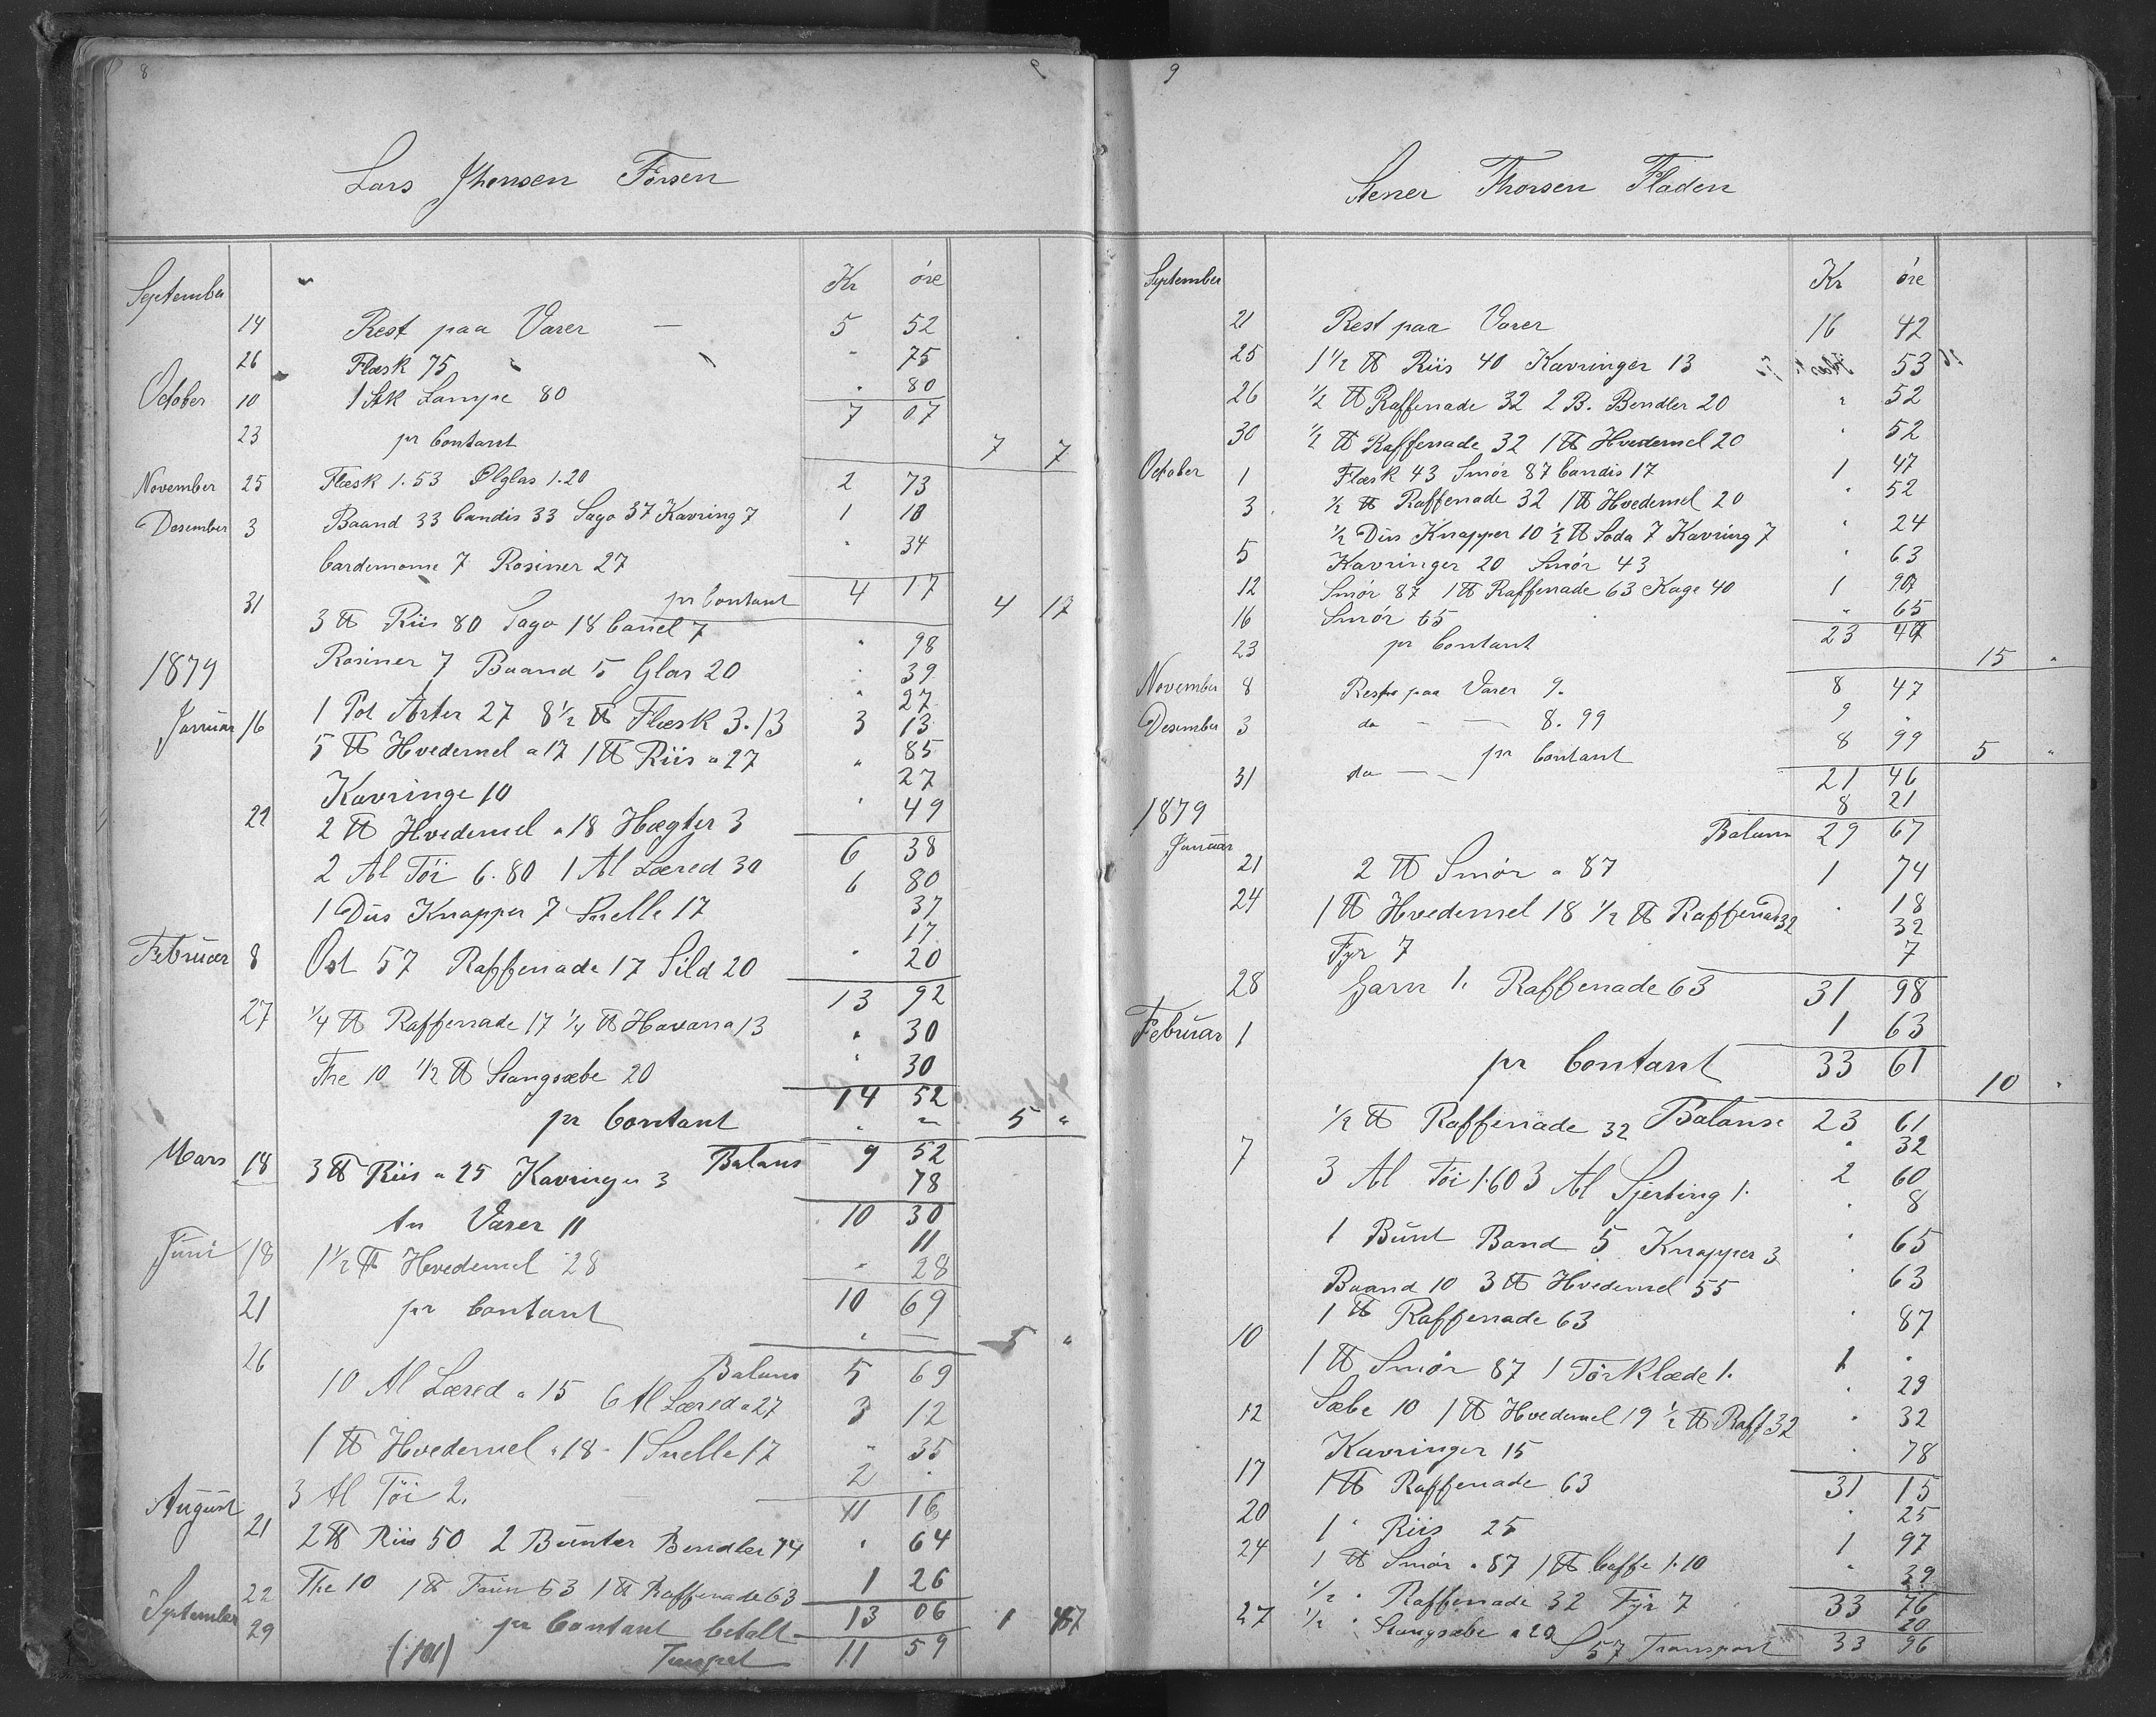 8
Lars Jhensen Forsen
Kr øre
September
14 Rest paa Varer — 5 52
26 Flæsk 75 " 75
October 10 1 Stk Lampe 80 " 80
7 07
23 pr Contant 7 7
November 25 Flæsk 1.53 Ølglas 1.20 2 73
Desember 3 Baand 33 Candis 33 Sago 37 Kavring 7 1 10
Cardemome 7 Rosiner 27 " 34
pr Contant 4 17 4 17
31 3 ℔ Riis 80 Sago 18 Canel 7 " 98
1879 Rosiner 7 Baand 5 Glas 20 " 39
" 27
Januar 16 1 Pot Arter 27 8½ ℔ Flæsk 3.13 3 13
5 ℔ Hvedemel a 17 1 ℔ Riis a 27 " 85
27
Kavringe 10
22 2 ℔ Hvedemel a 18 Hægter 3 " 49
6 38
2 Al Töi 6.80 1 Al Læred 30 6 80
1 Dus Knapper 7 Snelle 17 37
17
Februar 8 Ost 57 Raffenade 17 Sild 20 " 20
13 92
27 ¼ ℔ Raffenade 17 ¼ ℔ Havana 13 " 30
The 10 ½ ℔ Stangsæbe 20 " 30
14 52
pr Contant " — 5 "
Balans 9 52
Mars 18 3 ℔ Riis a 25 Kavringer 3 78
10 30
An Varer 11 11
Juni 18 1½ ℔ Hvedemel 28 " 28
10 69
21 pr Contant " — 5 "
Balans 5 69
26 10 Al Læred a 15 6 Al Læred a 27 3 12
1 ℔ Hvedemel a 18 - 1 Snelle 17 " 35
3 Al Töi 2. 2 "
11 16
August 21 2 ℔ Riis 50 2 Bunter Bendler 14 " 64
September 22 The 10 1 ℔ Farin 53 1 ℔ Raffenade 63 1 26
13 06
29 pr Contant betalt 1 47
(101) 11 59
9
Stener Thorsen Fladen
Kr øre
September
21 Rest paa Varer 16 42
25 1½ ℔ Riis 40 Kavringer 13 53
26 ½ ℔ Raffenade 32 2 B. Bendler 20 " 52
30 ½ ℔ Raffenade 32 1 ℔ Hvedemel 20 " 52
October 1 Flæsk 43 Smør 87 Candis 17 1 47
3 ½ ℔ Raffenade 32 1 ℔ Hvedemel 20 " 52
½ Dus Knapper 10 ½ ℔ Soda 7 Kavring 7 " 24
5 Kavringer 20 Smør 43 " 63
12 Smør 87 1 ℔ Raffenade 63 Kage 40 1 90
16 Smør 65 " 65
23 47
23 pr Contant 15 "
8 47
November 8 Rest paa Varer 9. 9 "
Desember 3 do — — 8.99 8 99
pr Contant 5 "
21 46
31 do — — 8 21
1879 Balans 29 67
Januar 21 2 ℔ Smør a 87 1 74
24 1 ℔ Hvedemel 18 ½ ℔ Raffenad 32 " 18
32
Fyr 7 7
31 98
28 Garn 1. Raffenade 63 1 63
33 61
Februar 1 pr Contant 10 "
Balanse 23 61
½ ℔ Raffenade 32 " 32
7 3 Al Töi 1.60 3 Al Sjerting 1. 2 60
1 Bunt Band 5 Knapper 3 " 8
Baand 10 3 ℔ Hvedemel 55 " 65
1 ℔ Raffenade 63 " 63
10 1 ℔ Smør 87 1 Törklæde 1. " 87
1 "
12 Sæbe 10 1 ℔ Hvedemel 19 ½ ℔ Raff 32 " 29
" 32
Kavringer 15
17 1 ℔ Raffenade 63 " 78
31 15
20 1 " Riis 25 " 25
24 1 ℔ Smør a 87 1 ℔ Caffe 1.10 1 97
½ " Raffenade 32 Fyr 7 " 39
33 76
27 ½ " Stangsæbe a 20 20
S 57 Transport 33 96